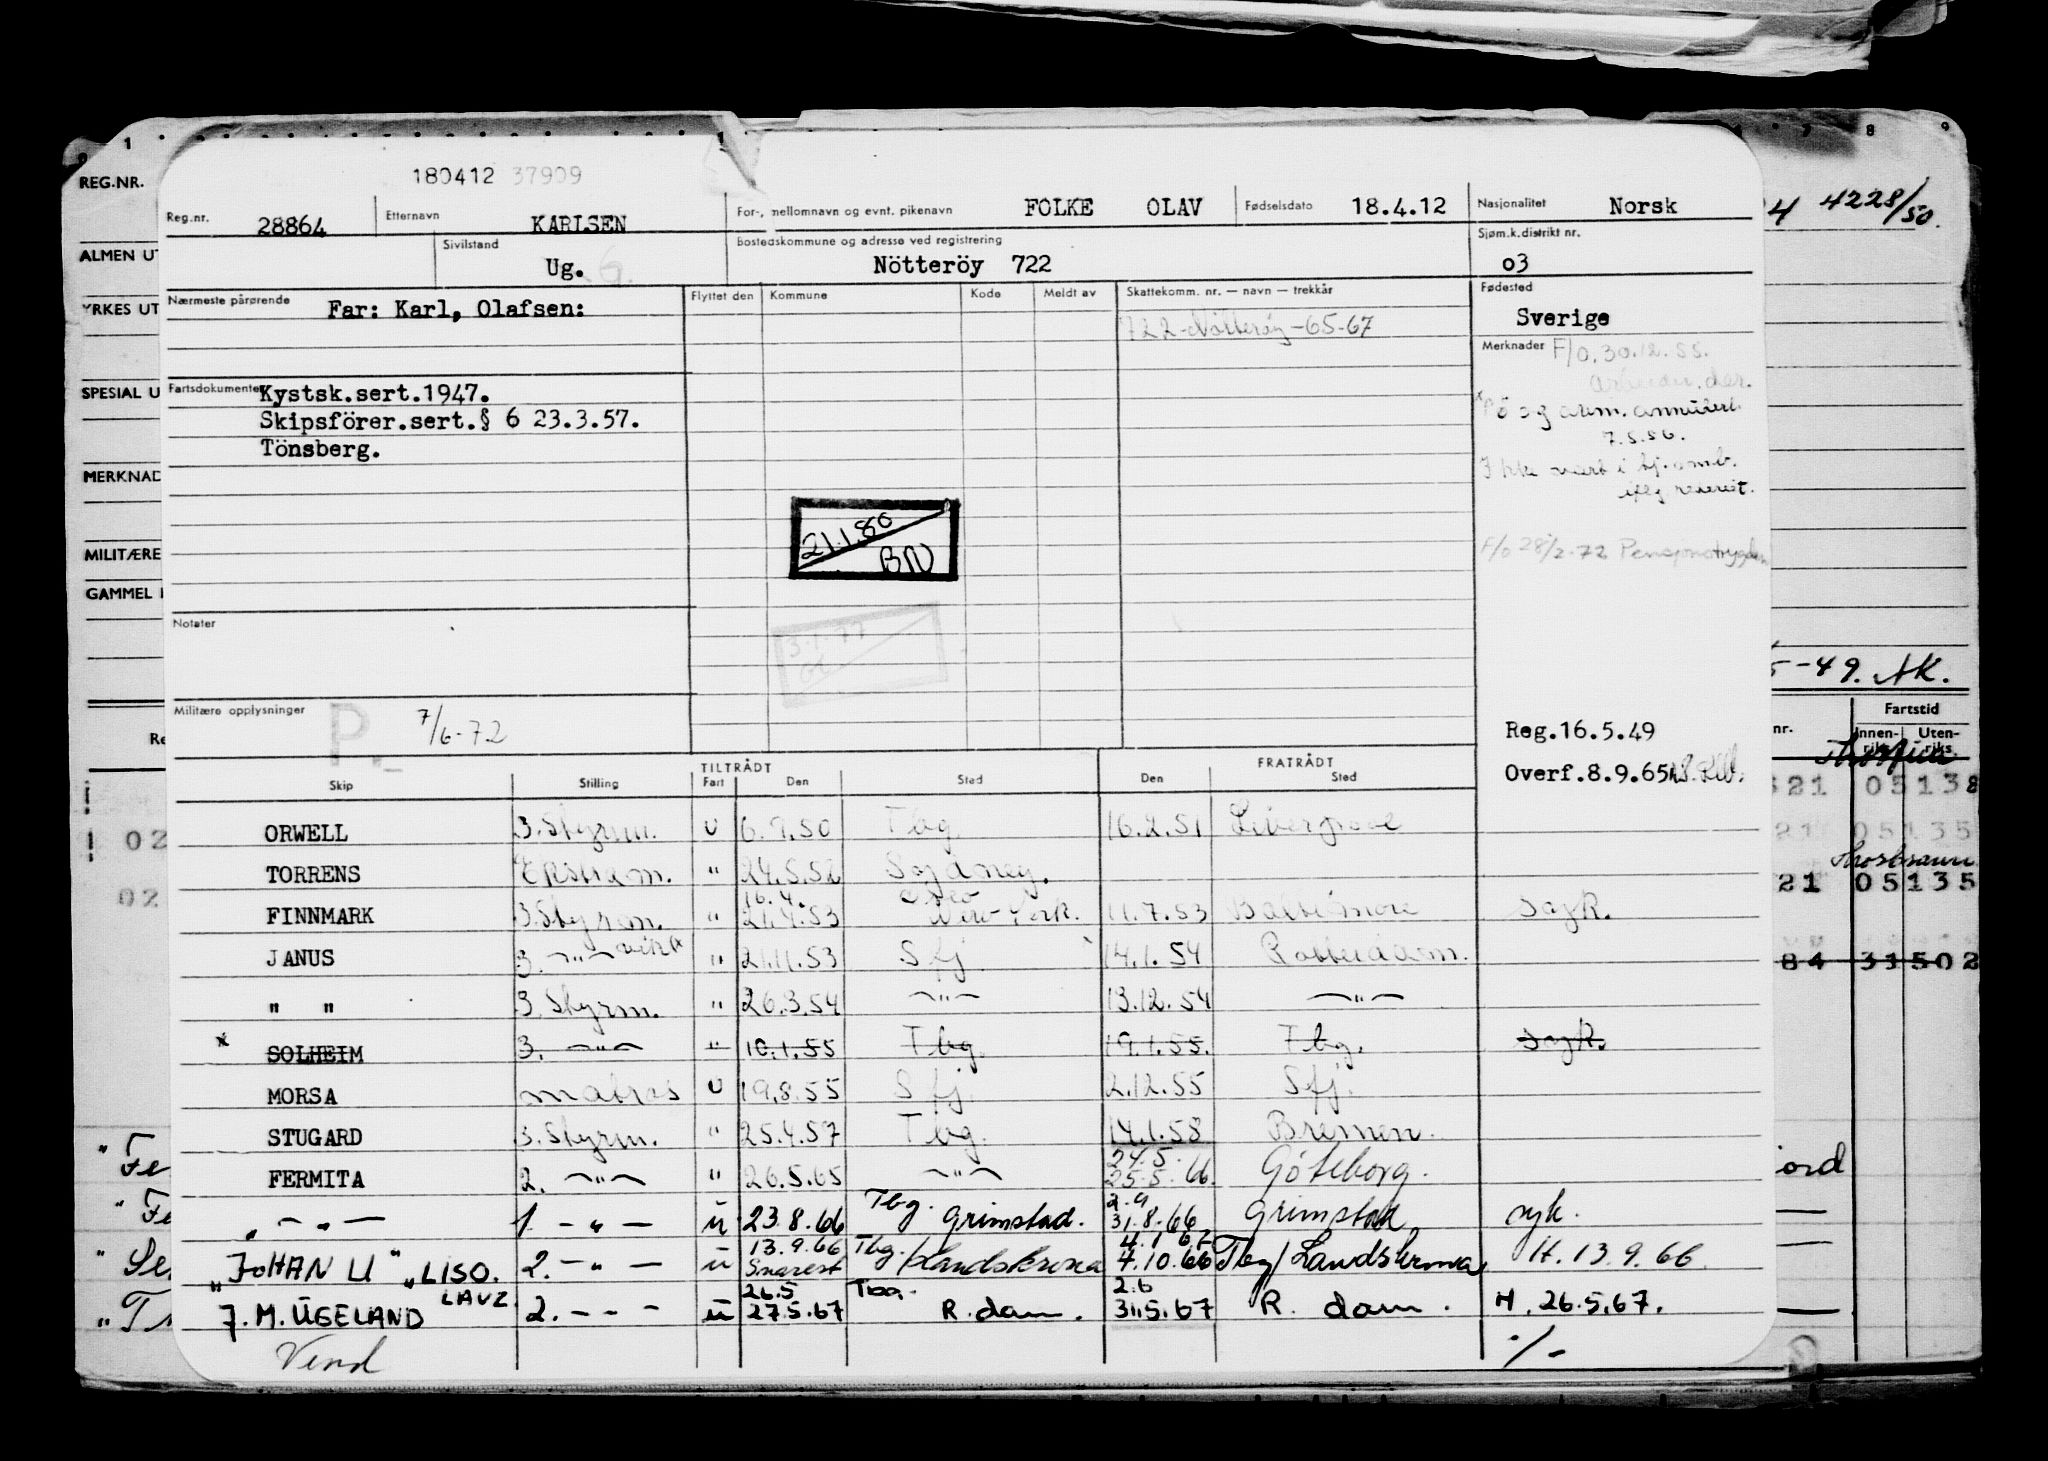 0 1 7 8 9
180412 37909
REG.NR.
4 4228/50.
Reg.nr. 28864 Etternavn KARLSEN For-, mellomnavn og evnt. pikenavn FOLKE OLAV Fødselsdato 18.4.12 Nasjonalitet Norsk
ALMEN UT
Sivilstand Ug. G. Bostedskommune og adresse ved registrering Nötteröy 722 Sjøm.k.distrikt nr. 03
Nærmeste pårørende Far: Karl, Olafsen: Flyttet den Kommune Kode Meldt av Skattekomm. nr. — navn — trekkår Fødested
YRKES UT
722-Nötteröy-65-67 Sverige
Merknader F/o. 30.12.55.
arbeider. der.
SPESIAL U
Fartsdokumenter Kystsk.sert.1947.
Skipsförer.sert.§ 6 23.3.57.
Tönsberg.
annullert
7.5.56.
Ikke vært i tj.
MERKNAD
MILITÆRE
21.1.80
BN
F/o 28/2-72 Pensjonstrygden
GAMMEL
Notater
3.1.77
5-49. AK.
Militære opplysninger P. 7/6-72
Reg.16.5.49
Overf.8.9.65
nr. Fartstid
Innen-riks Uten-riks
Re
TILTRÅDT FRATRÅDT
Skip Stilling Fart Den Sted Den Sted
ORWELL 3. Styrm. u 6.9.50 Tbg 16.2.51 Liverpool
TORRENS Ekstram. " 24.5.52 Sydney.
FINNMARK 3. Styrm. " 16.4. 21.4.53 Oslo New York. 11.7.53 Baltimore syk.
JANUS 3. —"— vikt " 21.11.53 Sfj 14.1.54 Rotterdam.
" " 3. Styrm. " 26.3.54 —"— 13.12.54 —"—
* SOLHEIM 3. —"— " 10.1.55 Tbg. 19.1.55. Tbg. syk.
MORSA matros u 19.8.55 Sfj. 2.12.55 Sfj.
STUGARD 3. Styrm. " 25.4.57 Tbg. 14.1.58 Bremen.
FERMITA 2. —"— " 26.5.65 —"— 24.5. 25.5.66 Göteborg.
" — " — 1. — " — u 23.8.66 Tbg. Grimstad. 2.9 31.8.66 Grimstad syk.
"JOHAN U" "LISO. 2. — " — u 13.9.66 Snarest Tbg./Landskrona 4.1.67 4.10.66 Tbg/Landskrona H. 13.9.66
LAUZ
J.M. UGELAND 2. – – – u 26.5 27.5.67 Tbg. R.dam. 2.6 31.5.67 R. dam. H. 26.5.67.
Vend ·/-
02
02
21 05138
21 05135
21 05135
84 31502
"Fe
"Fe
"Se
"T
ord